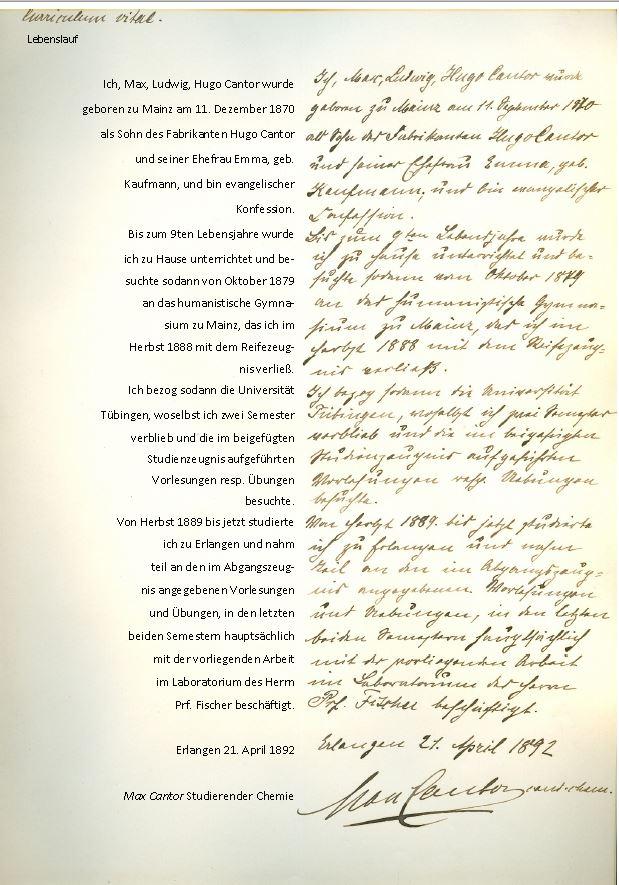 Curriculum vitae.
Lebenslauf
Ich, Max, Ludwig, Hugo Cantor wurde
geboren zu Mainz am 11. Dezember 1870
als Sohn des Fabrikanten Hugo Cantor
und seiner Ehefrau Emma, geb.
Kaufmann, und bin evangelischer
Konfession.
Bis zum 9ten Lebensjahre wurde
ich zu Hause unterrichtet und be-
suchte sodann von Oktober 1879
an das humanistische Gymna-
sium zu Mainz, das ich im
Herbst 1888 mit dem Reifezeug-
nis verließ.
Ich bezog sodann die Universität
Tübingen, woselbst ich zwei Semester
verblieb und die im beigefügten
Studienzeugnis aufgeführten
Vorlesungen resp. Übungen
besuchte.
Von Herbst 1889 bis jetzt studierte
ich zu Erlangen und nahm
teil an den im Abgangszeug-
nis angegebenen Vorlesungen
und Übungen, in den letzten
beiden Semestern hauptsächlich
mit der vorliegenden Arbeit
im Laboratorium des Herrn
Prf. Fischer beschäftigt.
Erlangen 21. April 1892
Max Cantor Studierender Chemie
Ich, Max, Ludwig, Hugo Cantor wurde
geboren zu Mainz am 11. September 1870
als Sohn des Fabrikanten Hugo Cantor
und seiner Ehefrau Emma, geb.
Kaufmann, und bin evangelischer
Confession.
Bis zum 9ten Lebensjahre wurde
ich zu Hause unterrichtet und be-
suchte sodann von Oktober 1879
an das humanistische Gymna-
sium zu Mainz, das ich im
Herbst 1888 mit dem Reifezeug-
nis verließ.
Ich bezog sodann die Universität
Tübingen, woselbst ich zwei Semester
verblieb und die im beigefügten
Studienzeugnis aufgeführten
Vorlesungen resp. Uebungen
besuchte.
Von Herbst 1889 bis jetzt studierte
ich zu Erlangen und nahm
Teil an den im Abgangszeug-
nis angegebenen Vorlesungen
und Uebungen, in den letzten
beiden Semestern hauptsächlich
mit der vorliegenden Arbeit
im Laboratorium des Herrn
Prf. Fischer beschäftigt.
Erlangen 21. April 1892
Max Cantor cand. chem.